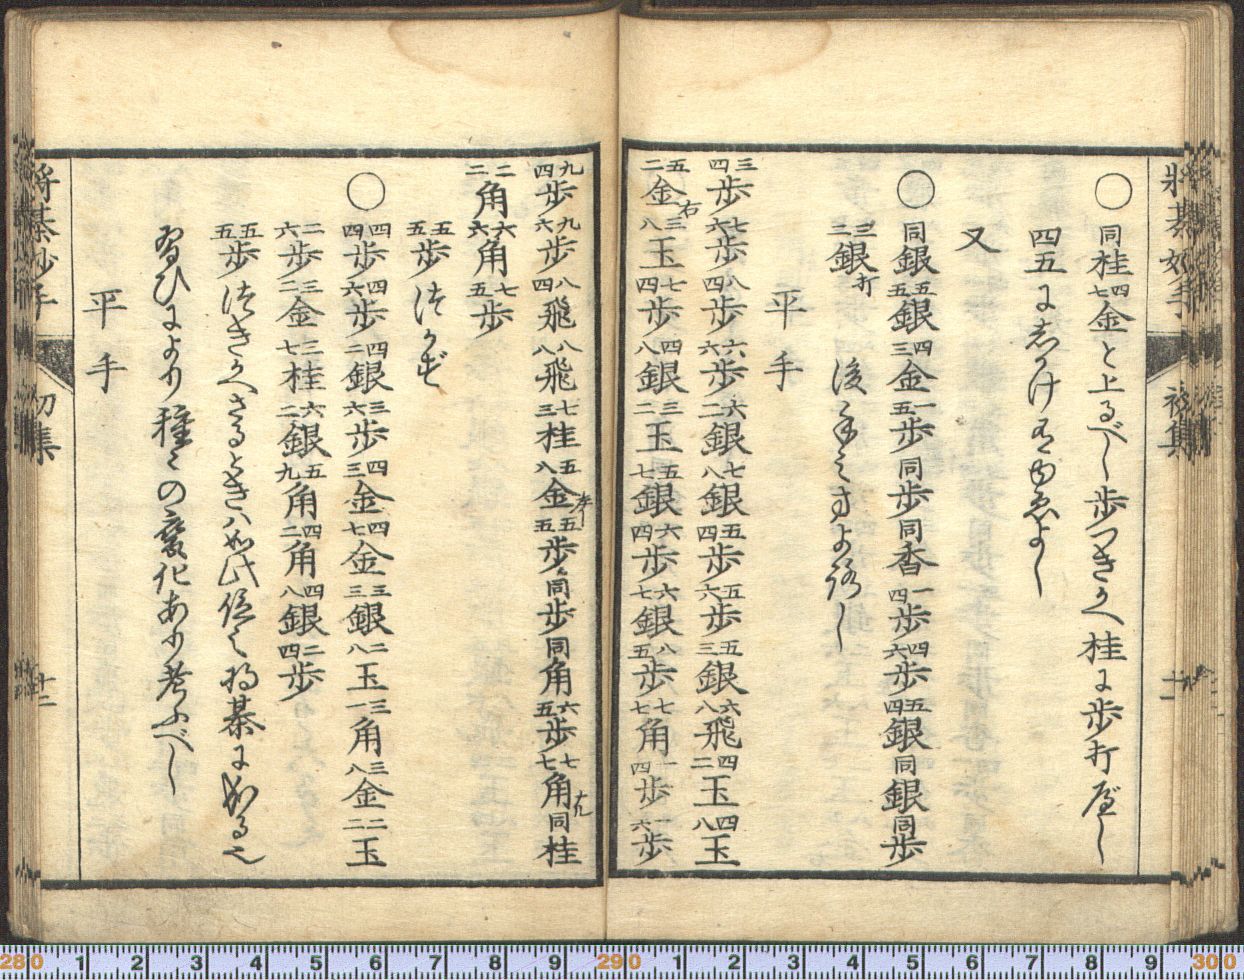 将棊妙手 初集 十一
○同桂四七金と上るべし歩つきかへ桂に歩打べし
四五にしかけ
又
○同銀五五銀四三金一五歩同歩同香一四歩四六歩五四銀同銀同歩
三三銀打 後手
平手
三四歩七六歩八四歩六六歩六二銀七八銀五四歩五六歩五三銀六八飛四二玉四八玉
五二金右三八玉七四歩四八銀三二玉五七銀六四歩六七銀八五歩七七角一四歩一六歩
九四歩九六歩八四飛八八飛七三桂五八金左五五歩同歩同角六五歩七七角成同桂
二二角六六角七五歩
五五歩
○四四歩四六歩四二銀三六歩四三金四七金三三銀二八玉三一角三八金二二玉
二六歩三二金三七桂六二銀五九角四二角四八銀二四歩
五五歩
により種々の変化あり考ふべし
平手
将棊妙手 初集 十二
280 1 2 3 4 5 6 7 8 9 290 1 2 3 4 5 6 7 8 9 300